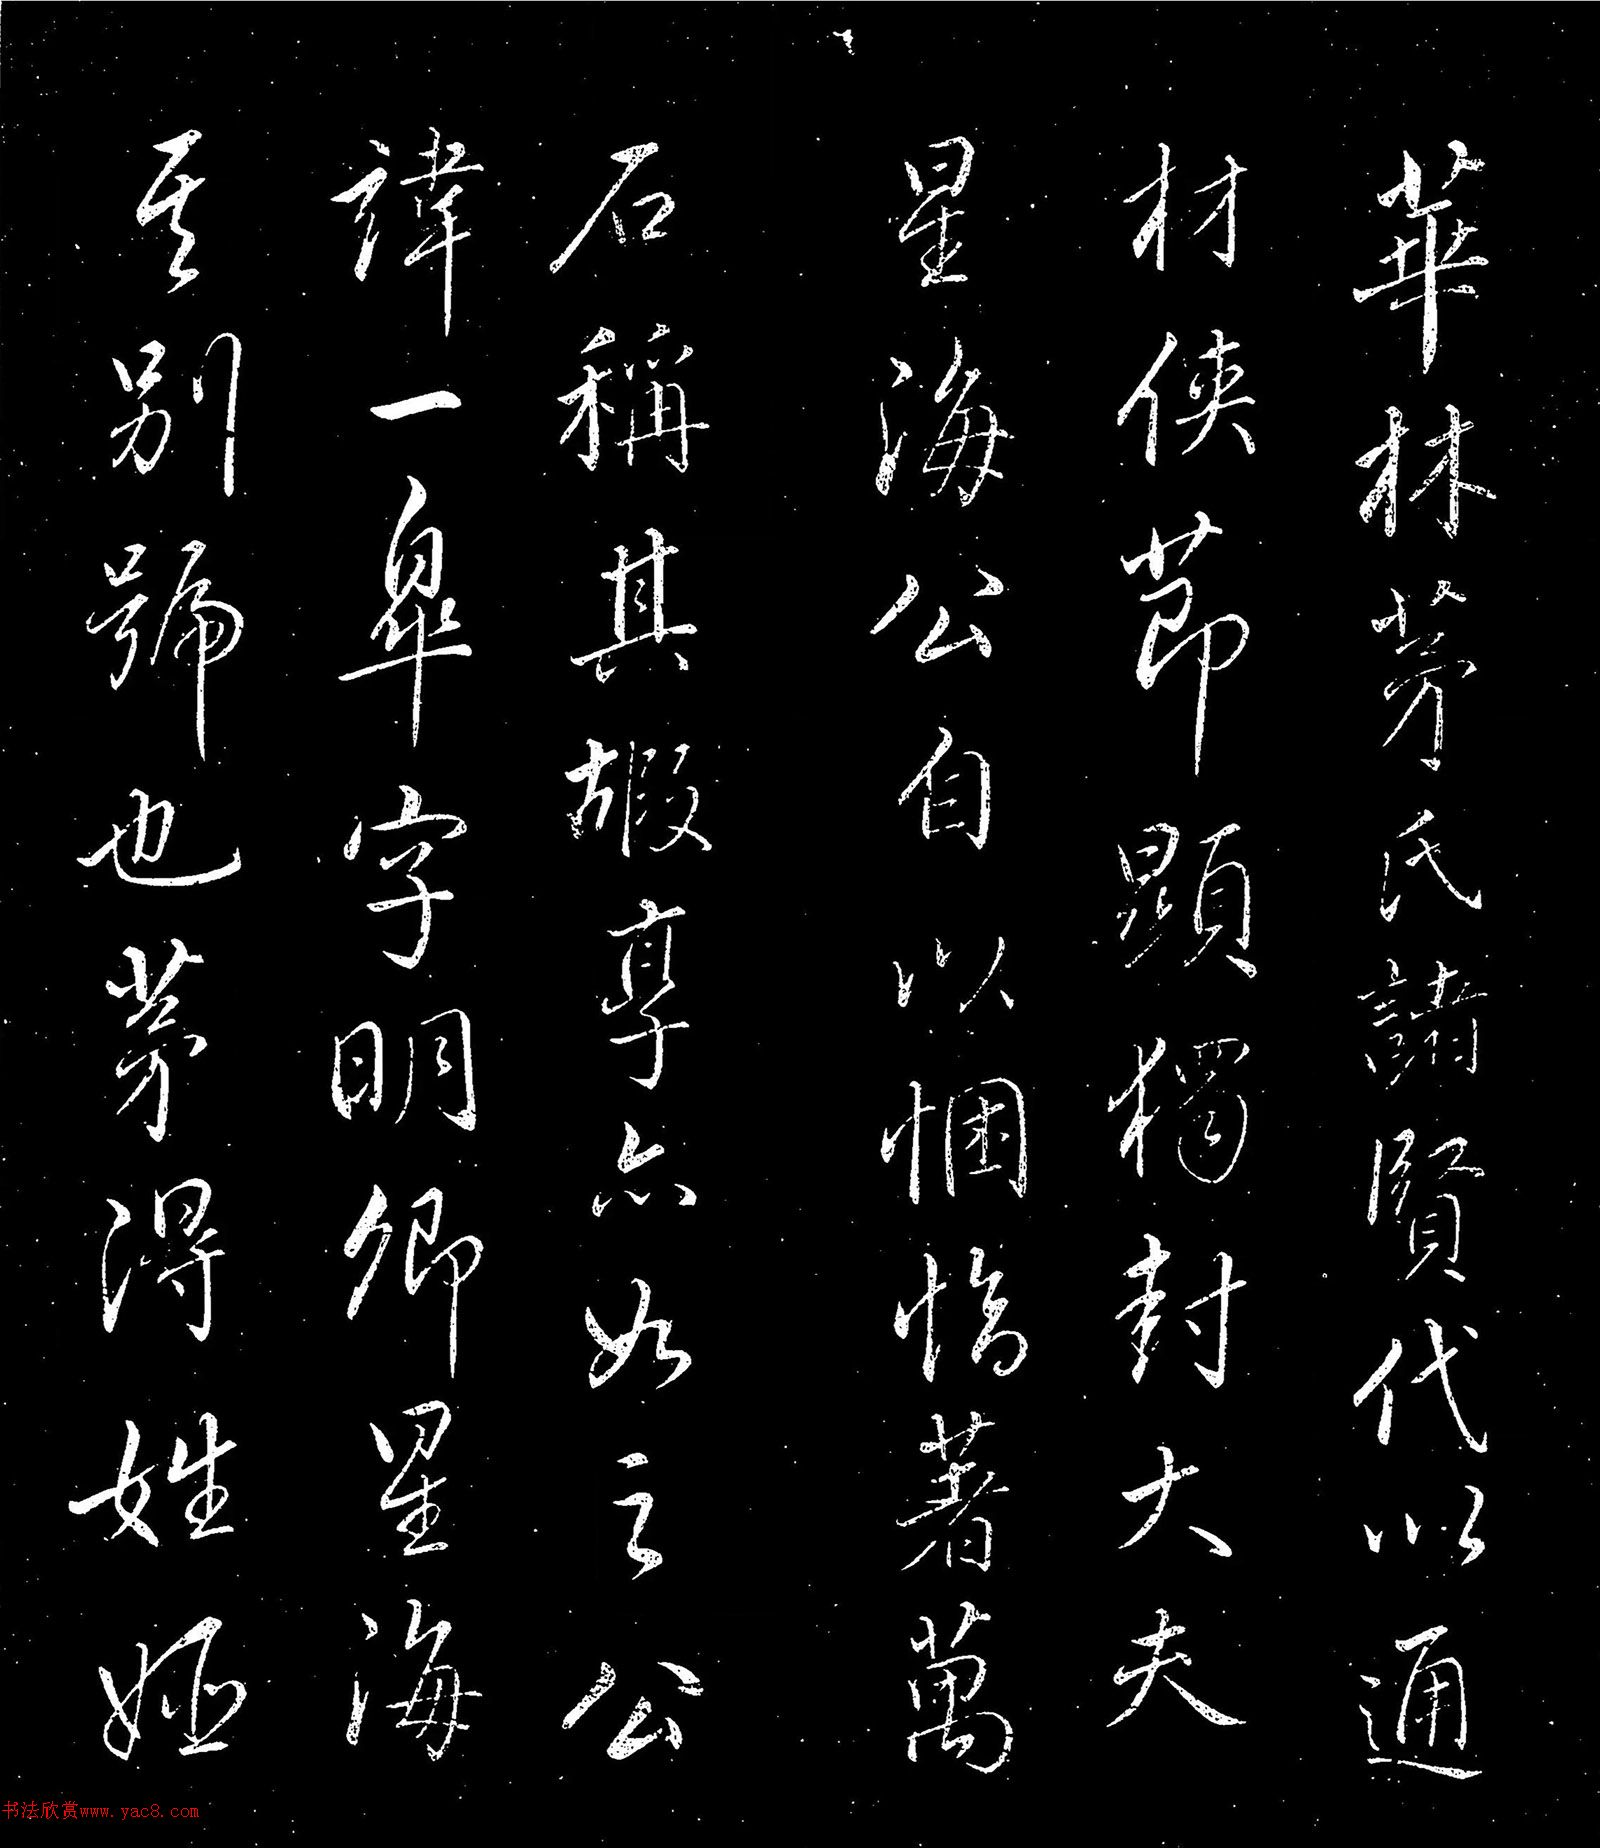 華林茅氏諸賢代以通
材俠節顯獨封大夫
星海公自以悃愊著萬
石稱其嘏享亦如之公
諱一皋字明卿星海
其別號也茅得姓姬
书法欣赏www.yac8.com